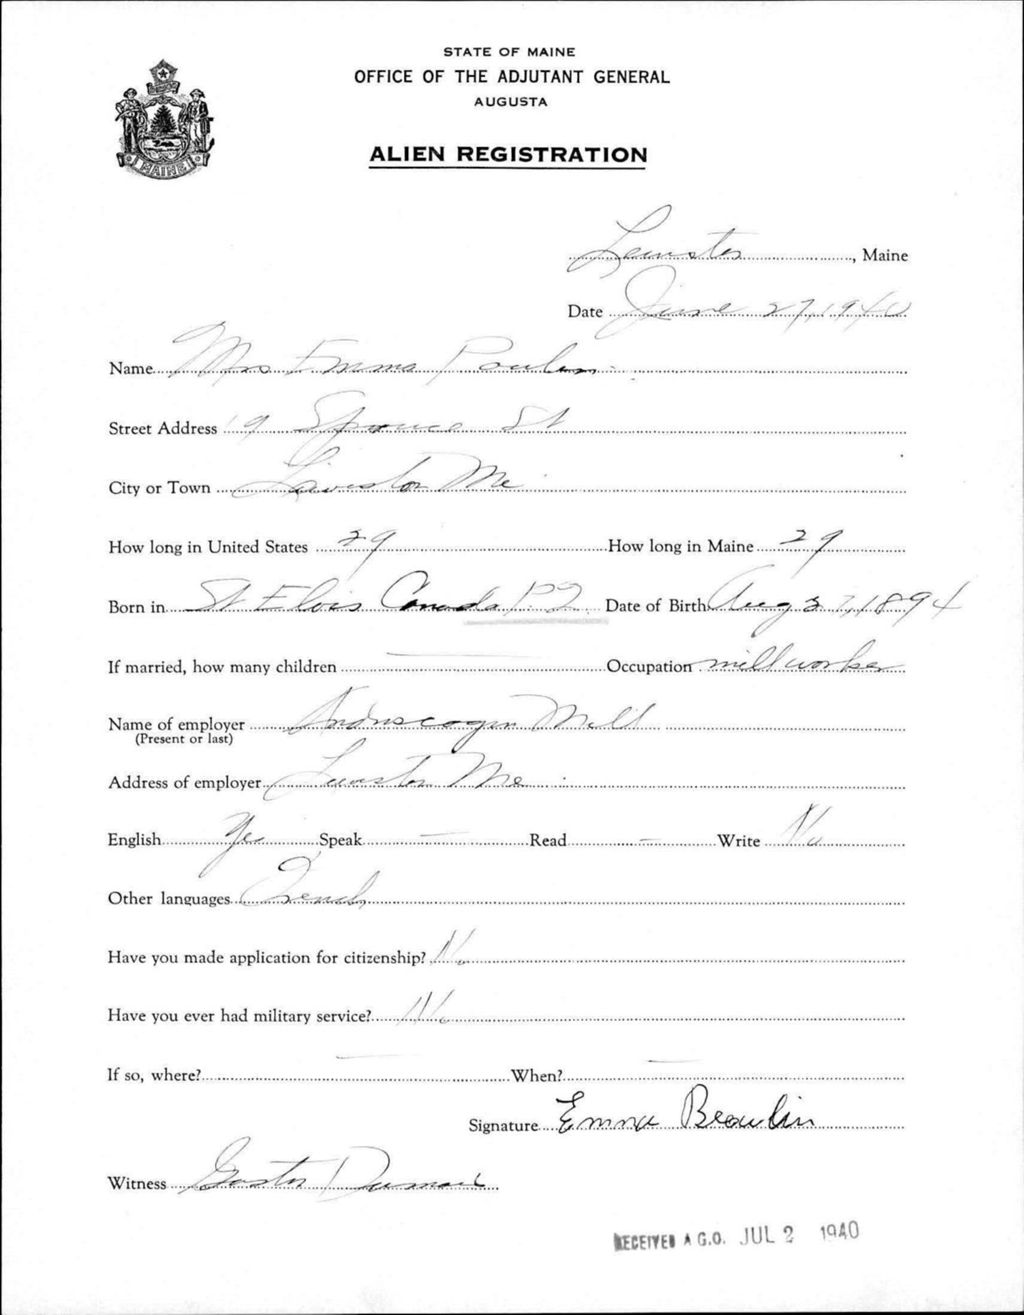 STATE OF MAINE
OFFICE OF THE ADJUTANT GENERAL
AUGUSTA
MAINE
ALIEN REGISTRATION
Lewiston, Maine
Date June 27, 1940
Name Mrs Emma Poulin
Street Address 19 Spruce St
City or Town Lewiston Me
How long in United States 29 How long in Maine 29
Born in St Elois Canada P.Q. Date of Birth Aug 27, 1894
If married, how many children — Occupation mill worker
Name of employer Androscogin Mill
(Present or last)
Address of employer Lewiston Me
English Yes Speak — Read — Write No
Other languages French
Have you made application for citizenship? No
Have you ever had military service? No
If so, where? — When? —
Signature Emma
Witness
RECEIVED A G.O. JUL 2 1940